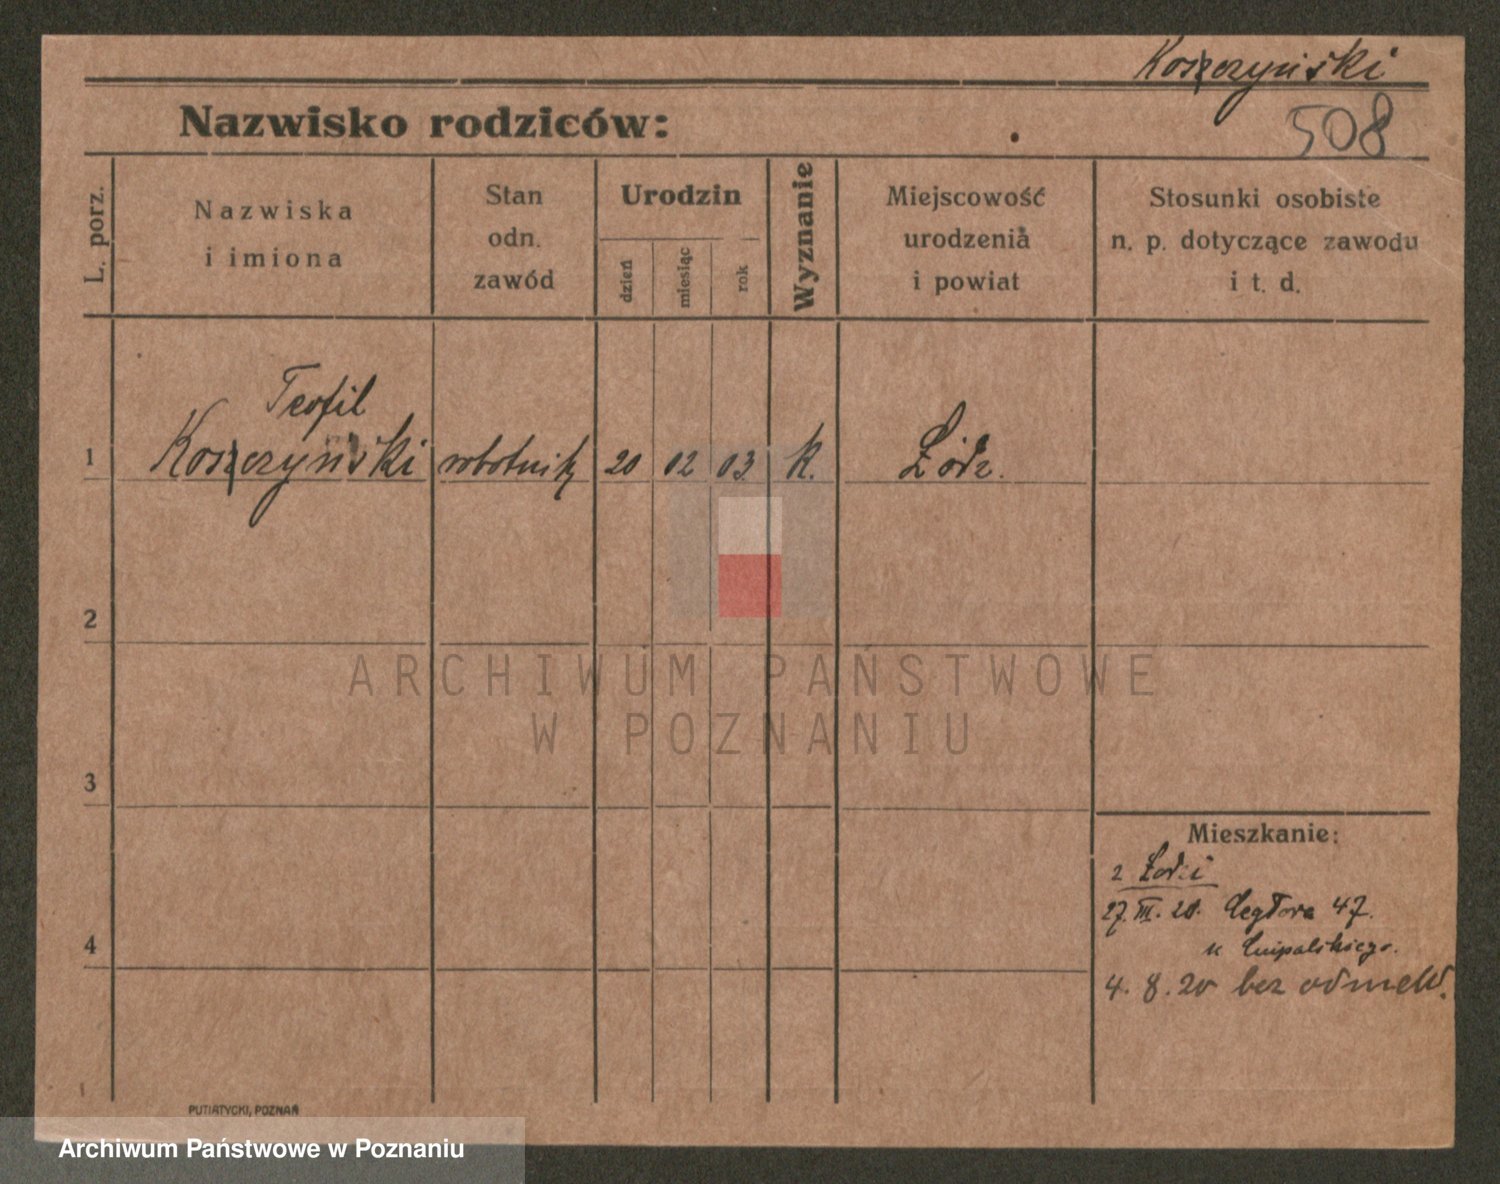 Koszczyński
508
Nazwisko rodziców:
L. porz.
Nazwiska
i imiona
Stan
odn.
zawód
Urodzin
dzień
miesiąc
rok
Wyznanie
Miejscowość
urodzenia
i powiat
Stosunki osobiste
n. p. dotyczące zawodu
i t. d.
Teofil
1 Koszczyński robotnik 20 02 03. K. Łódz.
2
3
4
Mieszkanie:
z Łodzi
27. III. 20. 47.
u
4. 8. 20 bez odmeld.
PUTIATYCKI, POZNAŃ
ARCHIWUM PAŃSTWOWE
W POZNANIU
Archiwum Państwowe w Poznaniu